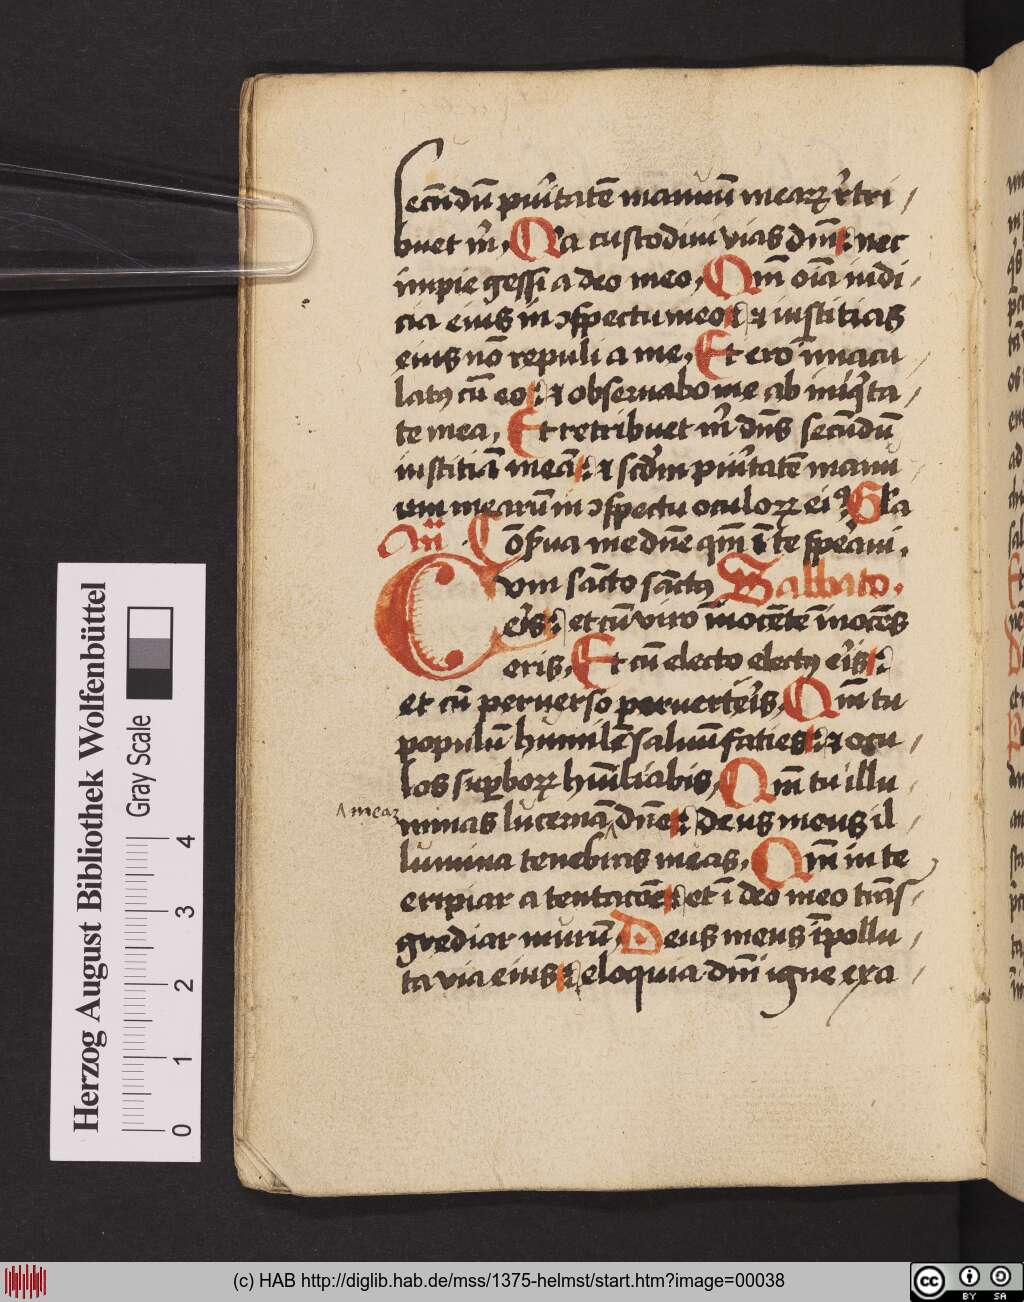 secūdū puītatē manuū mearꝝ rͥtri
buet mͥ, Qͥa custodiui vias dn̄i: nec
impie gessi a deo meo, Qm̄ oīa iudi
cia eius in ꝯspectu meo: ⁊ iustitias
eius nō repuli a me, Et ero īmacu
latꝰ cū eo: ⁊ obseruabo me ab iniqͥta
te mea, Et retribuet mͥ dn̄s secūdū
iustitiā meā: ⁊ scd̄m puītatē manu
um mearū in ꝯspectu oculoꝝ eiꝰ Gl̄a
An̄ Cōſua me dn̄e qm̄ ī te speͣui,
Cum sācto sāctꝰ Sabbato.
eīs: et cū viro īnocēte īnocēs
eris, Et cū electo electꝰ eīs:
et cū peruerso peruerteīs, Qm̄ tu
populū humilē saluū facies: ⁊ ocu
los suꝑboꝝ hūiliabis, Qm̄ tu illu
ʌ meaꝫ
minas lucernā ʌ dn̄e: deus meus il
lumina tenebras meas, Qm̄ in te
eripiar a tentacōe: et ī deo meo trās
grediar murū, Deus meus īpollu
ta via eius: eloquia dn̄i igne exa
Herzog August Bibliothek Wolfenbüttel
Gray Scale
0 1 2 3 4
(c) HAB http://diglib.hab.de/mss/1375-helmst/start.htm?image=00038
cc BY SA